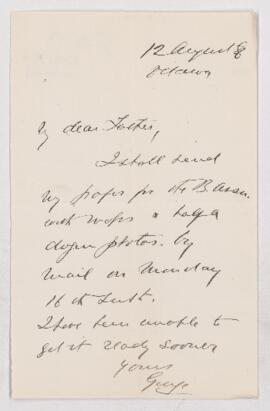 12 August 86
Ottawa
My dear Father,
I shall send
my paper for the B. Assn.
with maps & half a
dozen photos. by
Mail on Monday
16th Inst.
I have been unable to
get it ready sooner
Yours
George